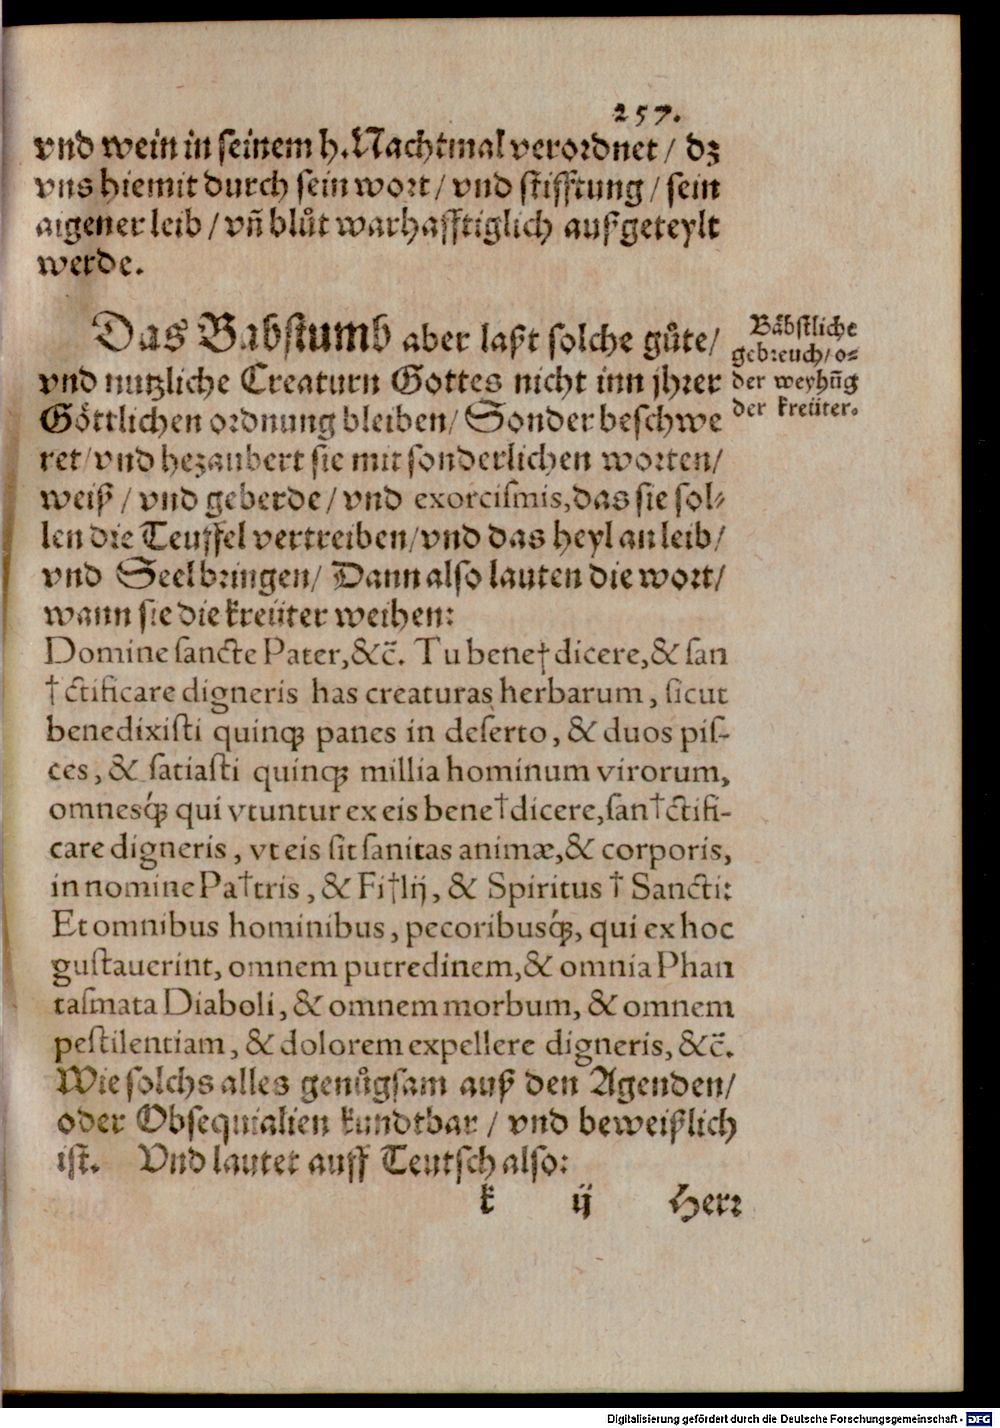 257.
vnd wein in seinem h. Nachtmal verordnet / dz
vns hiemit durch sein wort / vnd stifftung / sein
aigener leib / vñ blůt warhafftiglich außgeteylt
werde.
Das Babstumb aber laßt solche gůte /
vnd nutzliche Creaturn Gottes nicht inn jhrer
Göttlichen ordnung bleiben / Sonder beschwe
ret / vnd bezaubert sie mit sonderlichen worten /
weiß / vnd geberde / vnd exorcismis, das sie sol-
len die Teuffel vertreiben / vnd das heyl an leib /
vnd Seel bringen / Dann also lauten die wort /
wann sie die kreüter weihen:
Bäbstliche
gebreuch / o-
der weyhũg
der kreüter.
Domine sancte Pater, &c̃. Tu bene†dicere, & san
†ctificare digneris has creaturas herbarum, sicut
benedixisti quinqꝫ panes in deserto, & duos pis-
ces, & satiasti quinqꝫ millia hominum virorum,
omnesqꝫ́ qui vtuntur ex eis bene†dicere, san†ctifi-
care digneris, vt eis sit sanitas animæ, & corporis,
in nomine Pa†tris, & Fi†lij, & Spiritus † Sancti:
Et omnibus hominibus, pecoribusqꝫ́, qui ex hoc
gustauerint, omnem putredinem, & omnia Phan
tasmata Diaboli, & omnem morbum, & omnem
pestilentiam, & dolorem expellere digneris, &c̃.
Wie solchs alles genůgsam auß den Agenden /
oder Obsequialien kundtbar / vnd beweißlich
ist. Vnd lautet auff Teutsch also:
k ij Herr
Digitalisierung gefördert durch die Deutsche Forschungsgemeinschaft - DFG